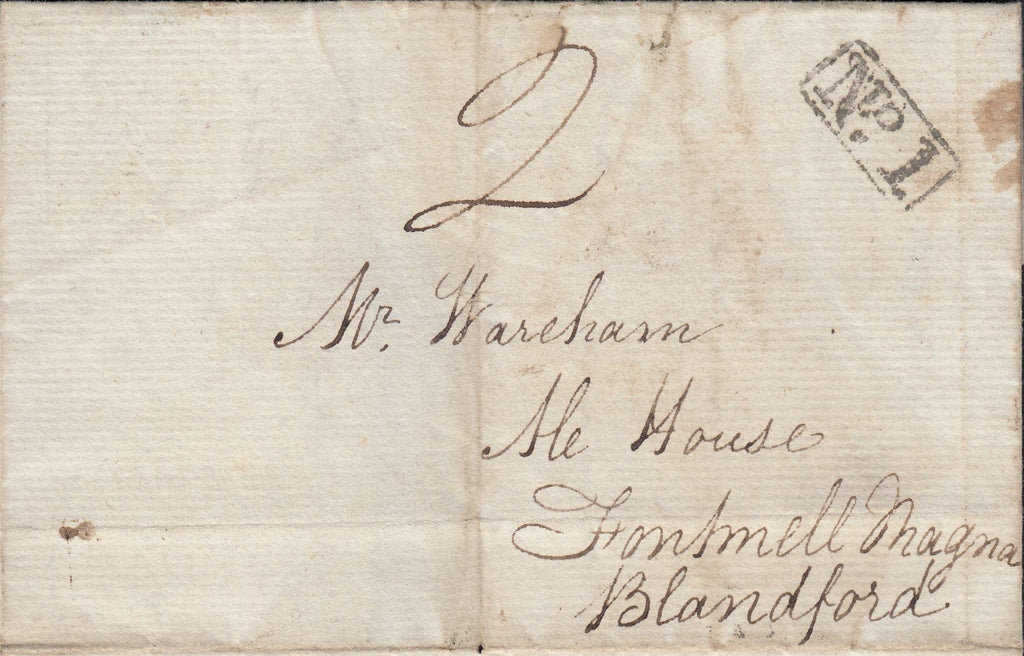 2
No. 1
Mr. Wareham
Ale House
Fontmell Magna
Blandford